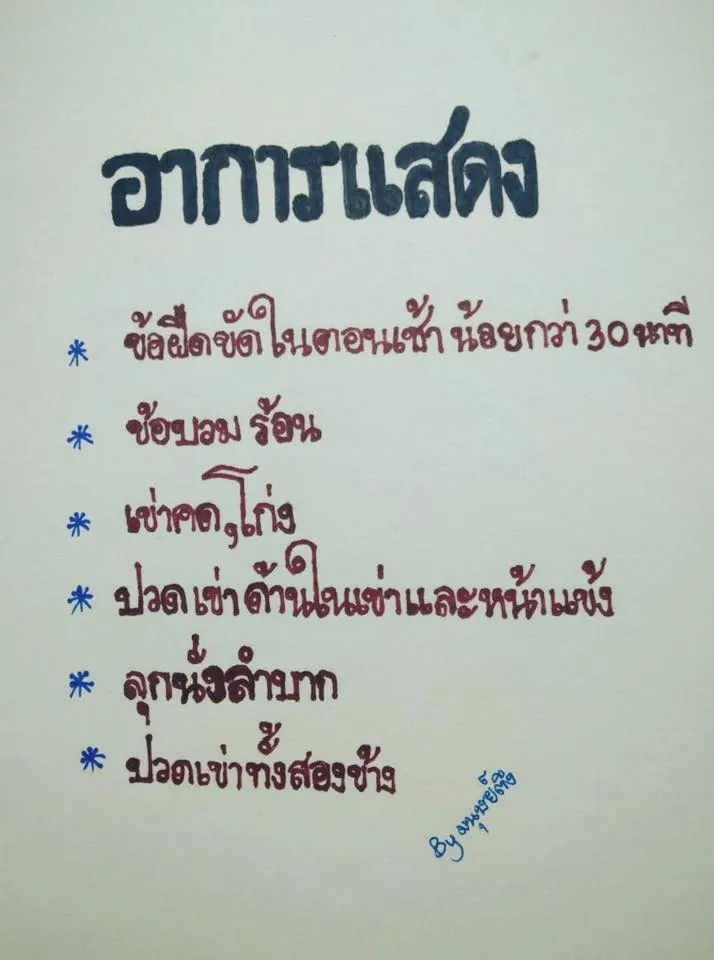 อาการแสดง
* ข้อฝืดขัดในตอนเช้า น้อยกว่า 30 นาที
* ข้อบวม ร้อน
* เข่าคด,โก่ง
* ปวดเข่า ด้านในเข่าและหน้าแข้ง
* ลุกนั่งลำบาก
* ปวดเข่าทั้งสองข้าง
By มนุษย์